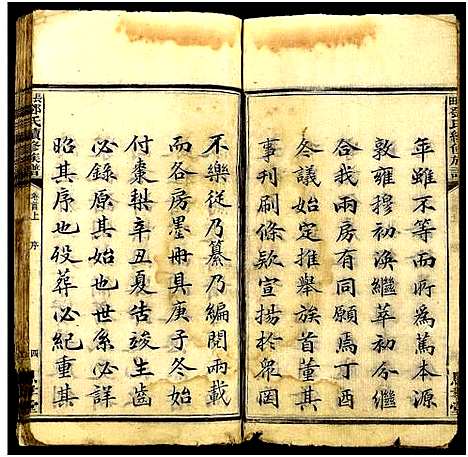 年雖不等而所為篤本源
敦雍穆初渙繼萃初今繼
合我兩房有同願焉丁酉
冬議始定推舉族首董其
事刊刷條欵宣揚於衆囙
不樂從乃纂乃編閱兩載
而各房墨冊具庚子冬始
付棗梨辛丑夏告竣生齒
必錄原其始也世系必詳
昭其序也歿葬必紀重其
鄧氏續修族譜
卷首上
序
四